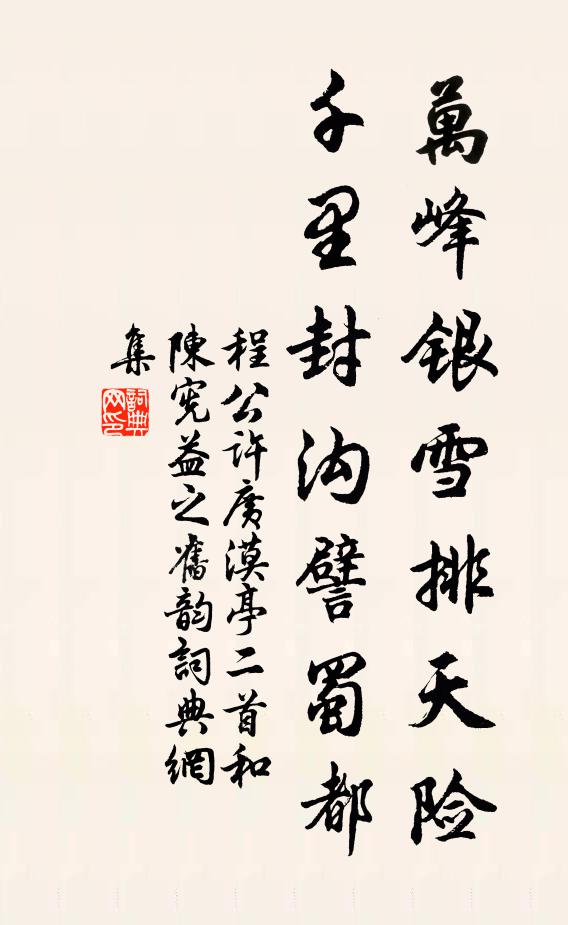 萬峰銀雪排天险
千里封沟譬蜀都
程公许廣漠亭二首和
陳宪益之舊韵詞典網
集
詞典网印